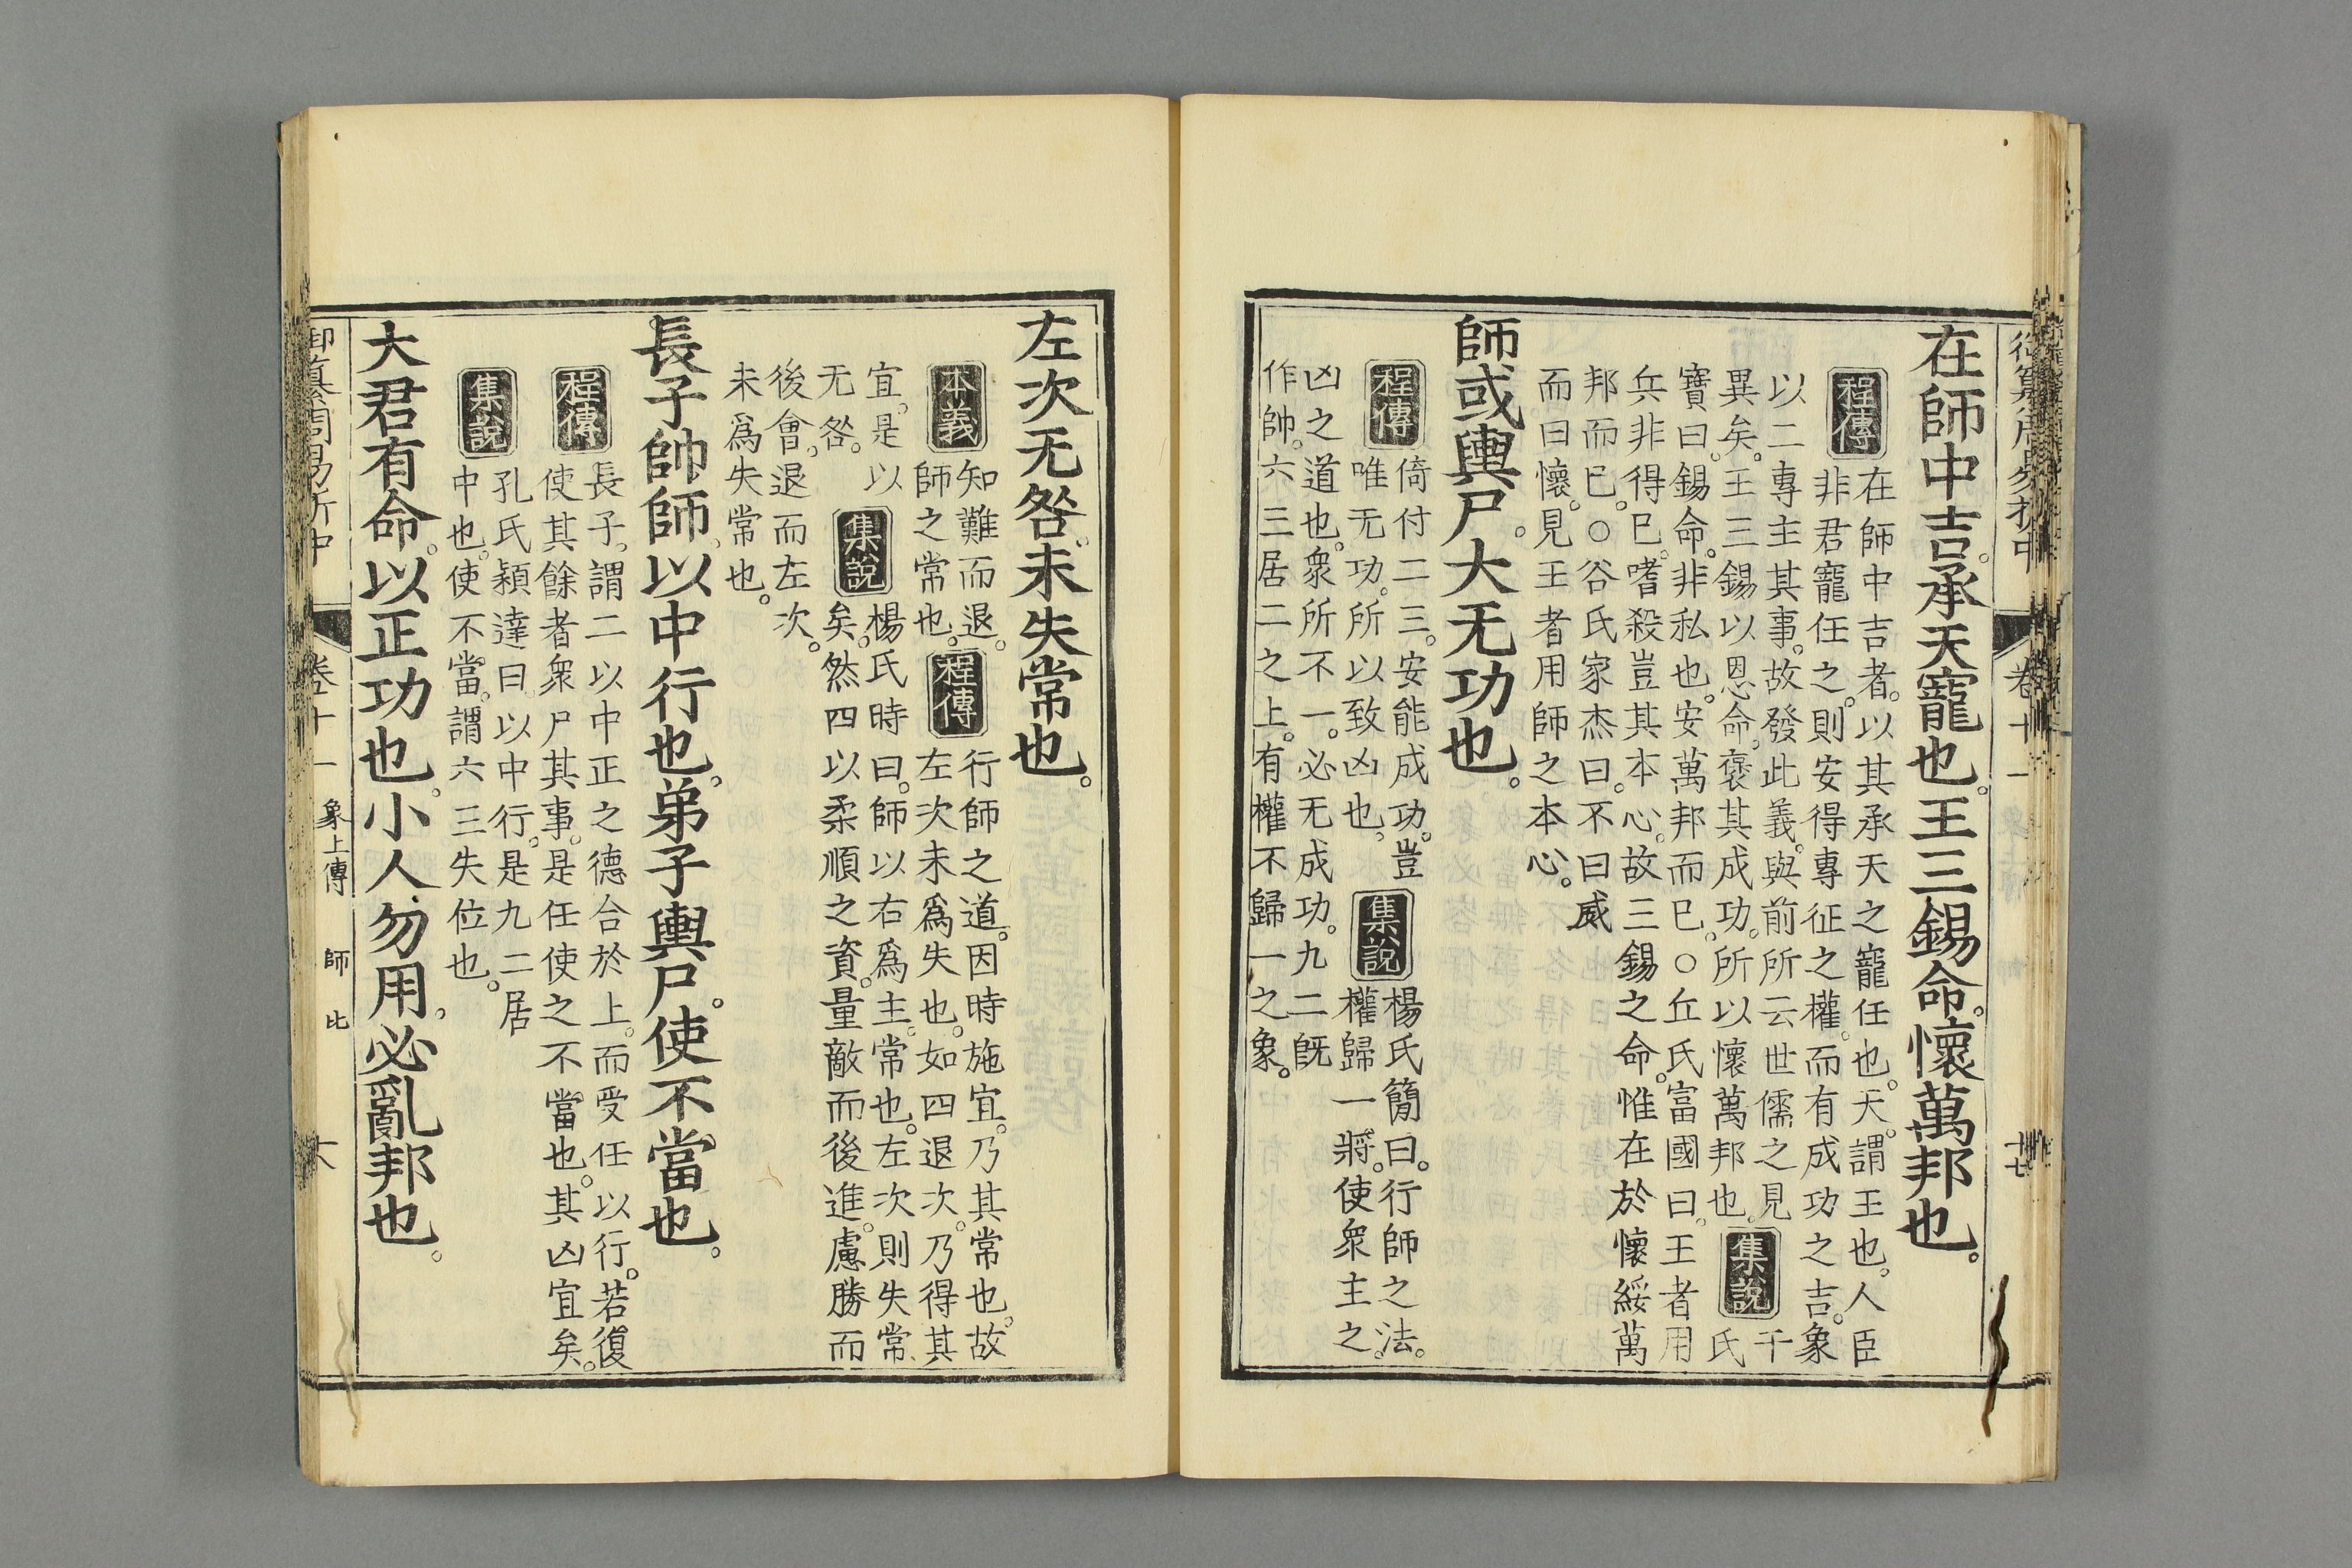 在師中吉。承天寵也。王三錫命。懷萬邦也。
程傳
在師中吉者。以其承天之寵任也。天。謂王也。人臣
非君寵任之。則安得專征之權。而有成功之吉。象
以二專主其事。故發此義。與前所云世儒之見
異矣。王三錫以恩命。褒其成功。所以懷萬邦也。
集說
干
氏
寶曰。錫命。非私也。安萬邦而已。○丘氏富國曰。王者用
兵非得已。嗜殺豈其本心。故三錫之命。惟在於懷綏萬
邦而已。○谷氏家杰曰。不曰威
而曰懷。見王者用師之本心。
師或輿尸。大无功也。
程傳
倚付二三。安能成功。豈
唯无功。所以致凶也。
集說
楊氏簡曰。行師之法。
權歸一將。使衆主之。
凶之道也。衆所不一。必无成功。九二旣
作帥。六三居二之上。有權不歸一之象。
卷十一
十七
左次无咎。未失常也。
本義
知難而退。
師之常也。
程傳
行師之道。因時施宜。乃其常也。故
左次未爲失也。如四退次。乃得其
宜。是以
无咎。
集說
楊氏時曰。師以右爲主。常也。左次則失常
矣。然四以柔順之資。量敵而後進。慮勝而
後會。退而左次。
未爲失常也。
長子帥師。以中行也。弟子輿尸。使不當也。
程傳
長子。謂二以中正之德合於上。而受任以行。若復
使其餘者衆尸其事。是任使之不當也。其凶宜矣。
集說
孔氏穎達曰。以中行。是九二居
中也。使不當。謂六三失位也。
大君有命。以正功也。小人勿用。必亂邦也。
御纂周易折中
卷十一
象上傳
師 比
十八